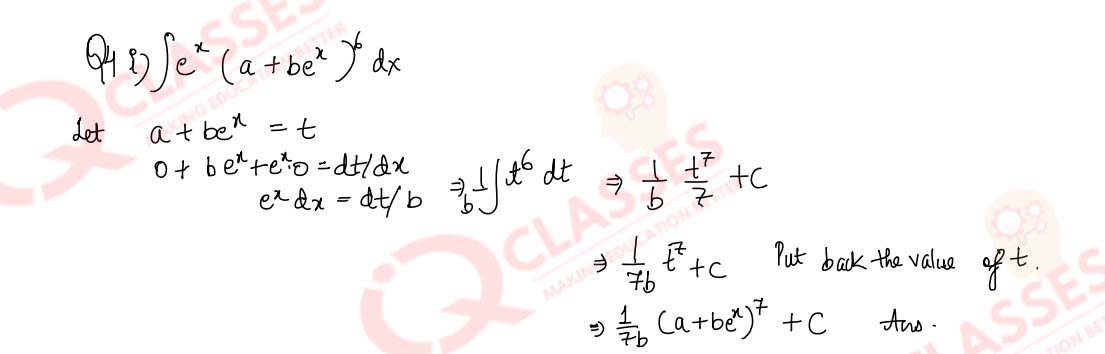 Q4 i) ∫e^x (a + be^x)^6 dx
Let a + be^x = t
0 + be^x + e^x·0 = dt/dx
e^x dx = dt/b ⇒ 1/b ∫t^6 dt ⇒ 1/b t^7/7 + C
⇒ 1/7b t^7 + C Put back the value of t.
⇒ 1/7b (a+be^x)^7 + C Ans.
CLASSES
MAKING EDUCATION BETTER
IQ CLASSES
MAKING EDUCATION BETTER
CLASSES